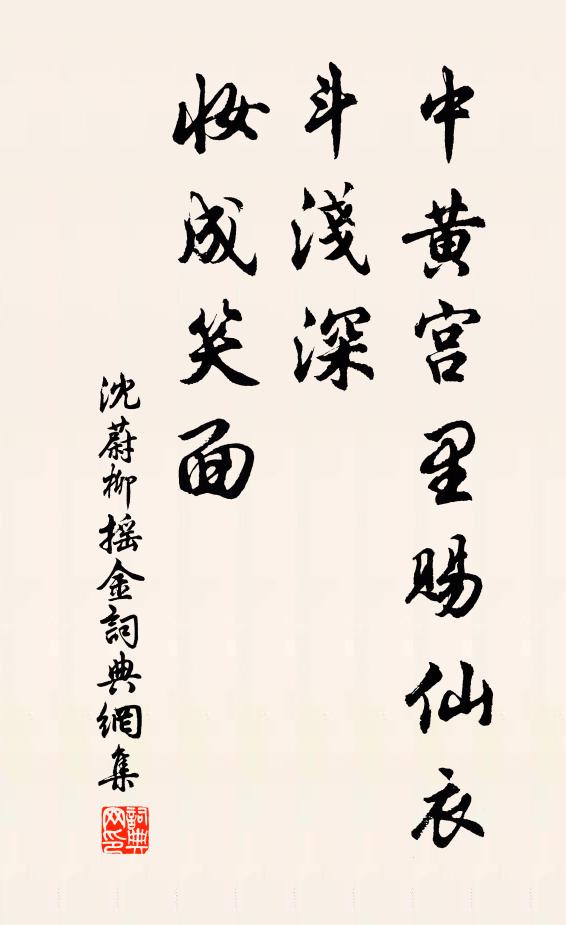 中黄宫里賜仙衣
斗淺深
妝成笑面
沈蔚柳摇金詞典網集
詞典網印